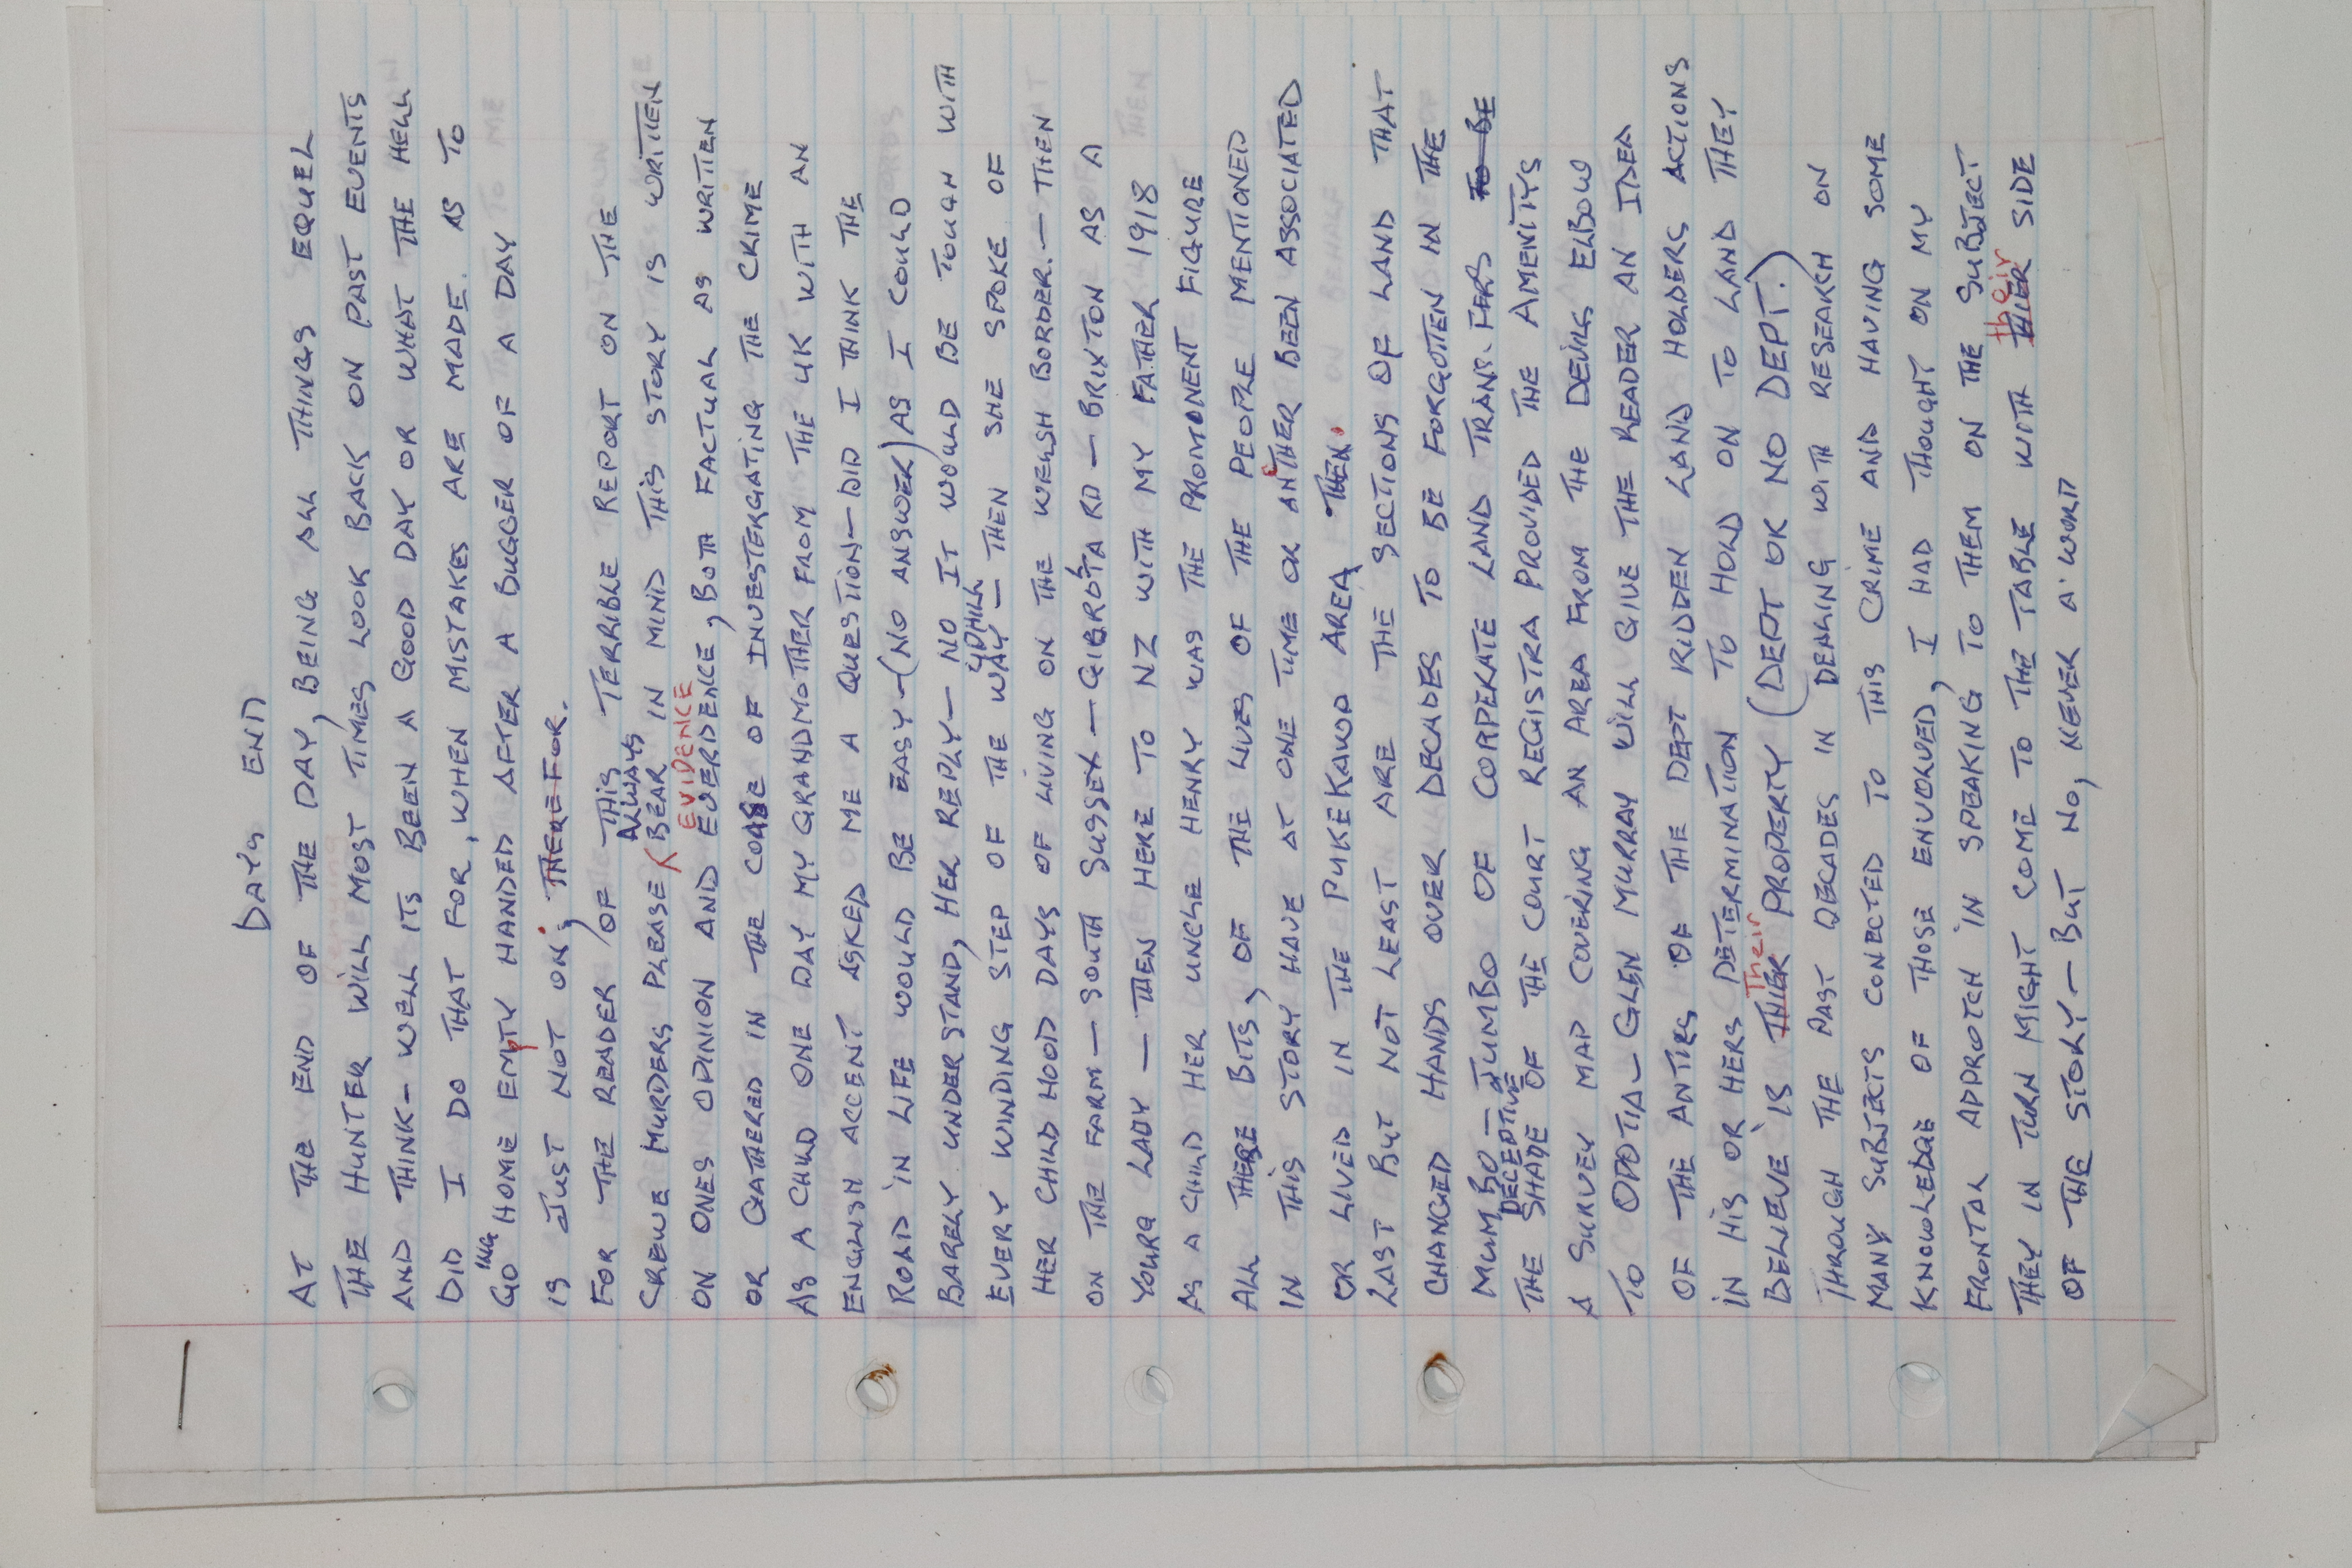 DAYS END
AT THE END OF THE DAY, BEING ALL THINGS EQUEL
THE HUNTER WILL MOST TIMES LOOK BACK ON PAST EVENTS
AND THINK - WELL ITS BEEN A GOOD DAY OR WHAT THE HELL
DID I DO THAT FOR, WHEN MISTAKES ARE MADE. AS TO
GOING HOME EMPTY HANDED AFTER A BUGGER OF A DAY
IS JUST NOT ON; THEREFOR.
FOR THE READER, OF THIS TERRIBLE REPORT ON THE
CREWE MURDERS PLEASE ALWAYS BEAR IN MIND THIS STORY IS WRITTEN
EVIDENCE
ON ONES OPINION AND EVERDENCE, BOTH FACTUAL AS WRITTEN
OR GATHERED IN, THE COASE OF INVESTERGATING THE CRIME
AS A CHILD ONE DAY MY GRANDMOTHER FROM THE UK WITH AN
ENGLISH ACCENT ASKED ME A QUESTION - DID I THINK THE
ROAD IN LIFE WOULD BE EASY - (NO ANSWER) AS I COULD
BARELY UNDERSTAND, HER REPLY - NO IT WOULD BE TOUGH WITH
EVERY WINDING STEP OF THE UPHILL WAY - THEN SHE SPOKE OF
HER CHILD HOOD DAYS OF LIVING ON THE WELSH BORDER. - THEN
ON THE FARM - SOUTH SUSSEX - GIBROTA RD - BRIXTON AS A
YOUNG LADY - THEN HERE TO NZ WITH MY FATHER 1918
AS A CHILD HER UNCLE HENRY WAS THE PROMONENT FIGURE
ALL THERE BITS, OF THE LIVES OF THE PEOPLE MENTIONED
IN THIS STORY HAVE AT ONE TIME OR ANOTHER BEEN ASSOCIATED
OR LIVED IN THE PUKEKAWA AREA THEN.
LAST BUT NOT LEAST ARE THE SECTIONS OF LAND THAT
CHANGED HANDS OVER DECADES TO BE FORGOTTEN IN THE
MUMBO - JUMBO OF CORPERATE LAND TRANSFERS TO BE
THE DECEPTIVE SHADE OF THE COURT REGISTRA PROVIDED THE AMENITYS
A SURVEY MAP COVERING AN AREA FROM THE DEVILS ELBOW
TO OPOTIA - GLEN MURRAY WILL GIVE THE READER AN IDEA
OF THE ANTIES OF THE DEPT RIDDEN LAND HOLDERS ACTIONS
IN HIS OR HERS DETERMINATION TO HOLD ON TO LAND THEY
BELIEVE IS THIER Their PROPERTY (DEPT OR NO DEPT.)
THROUGH THE PAST DECADES IN DEALING WITH RESEARCH ON
MANY SUBJECTS CONECTED TO THIS CRIME AND HAVING SOME
KNOWLEDGE OF THOSE ENVOLVED, I HAD THOUGHT ON MY
FRONTAL APPROTCH IN SPEAKING TO THEM ON THE SUBJECT
THEY IN TURN MIGHT COME TO THE TABLE WITH THIER their SIDE
OF THE STORY - BUT NO, NEVER A WORD